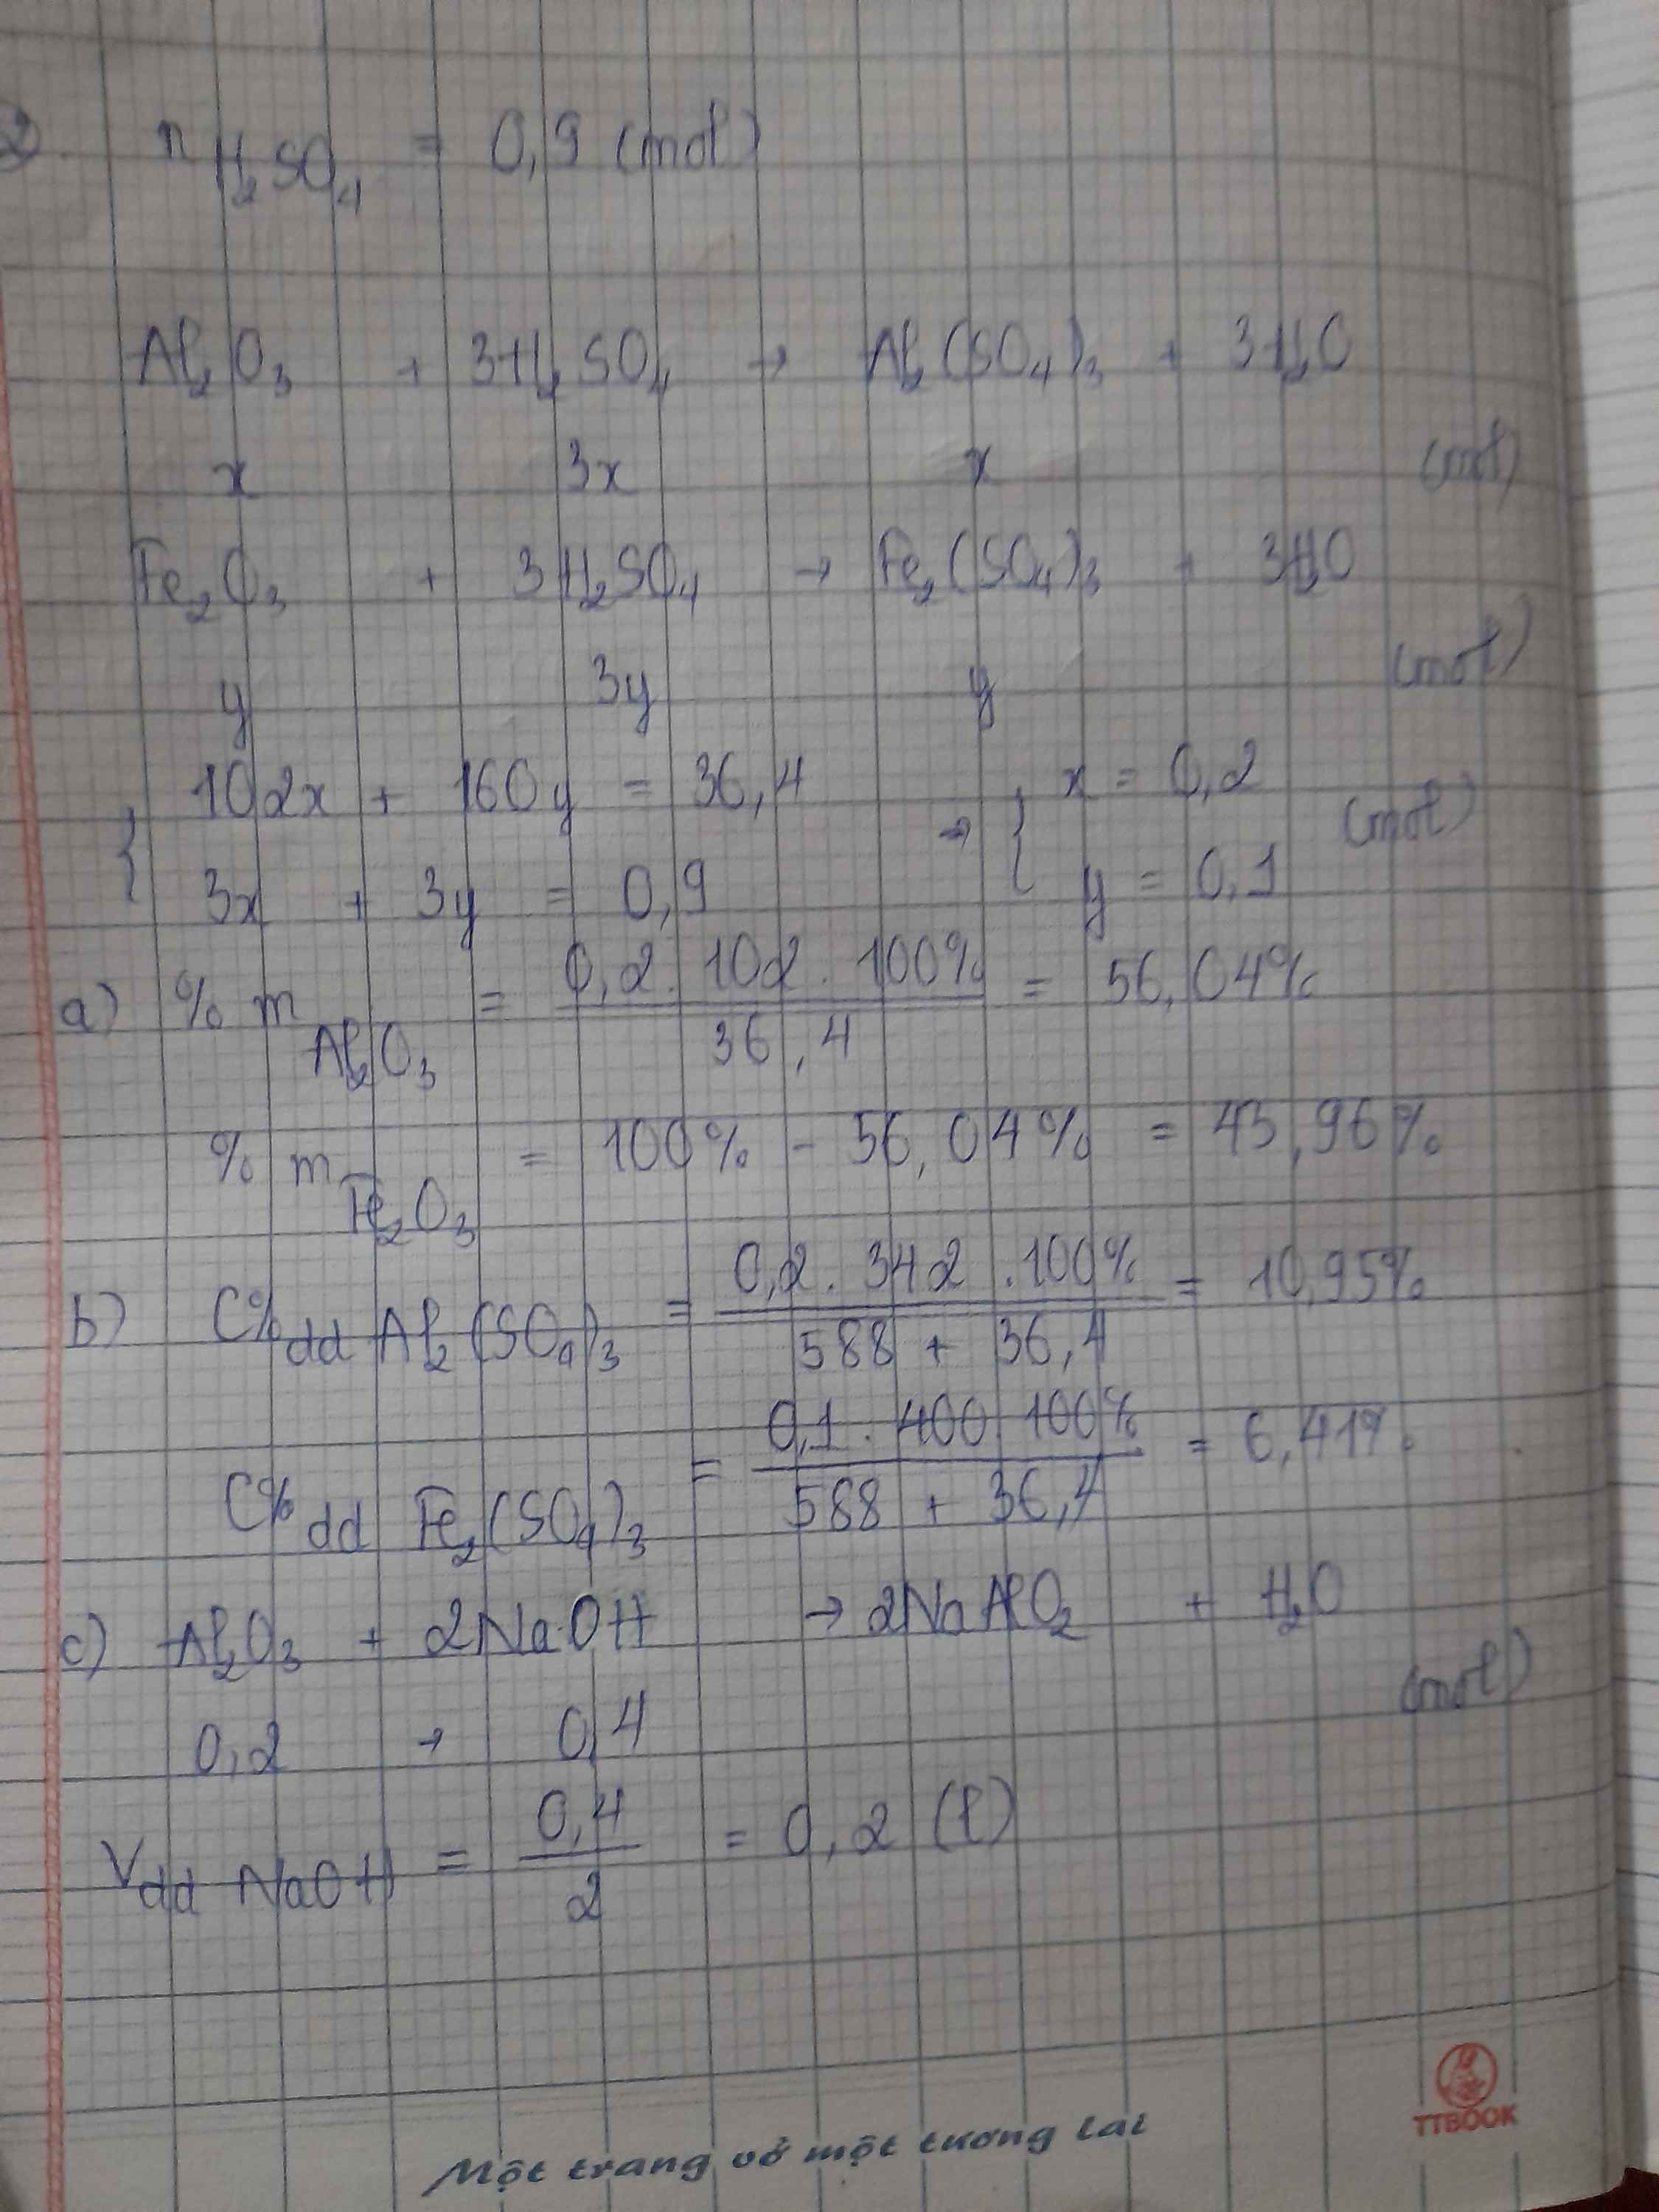 2. n H₂SO₄ = 0,9 (mol)
Al₂O₃ + 3H₂SO₄ → Al₂(SO₄)₃ + 3H₂O
x 3x x (mol)
Fe₂O₃ + 3H₂SO₄ → Fe₂(SO₄)₃ + 3H₂O
y 3y y (mol)
{ 102x + 160y = 36,4 → { x = 0,2 (mol)
3x + 3y = 0,9 y = 0,1
a) % m Al₂O₃ = 0,2 . 102 . 100% / 36,4 = 56,04%
% m Fe₂O₃ = 100% - 56,04% = 43,96%
b) C% dd Al₂(SO₄)₃ = 0,2 . 342 . 100% / 588 + 36,4 = 10,95%
C% dd Fe₂(SO₄)₃ = 0,1 . 400 . 100% / 588 + 36,4 = 6,41%
c) Al₂O₃ + 2NaOH → 2NaAlO₂ + H₂O
0,2 → 0,4 (mol)
V dd NaOH = 0,4 / 2 = 0,2 (l)
TTBOOK
Một trang vở một tương lai